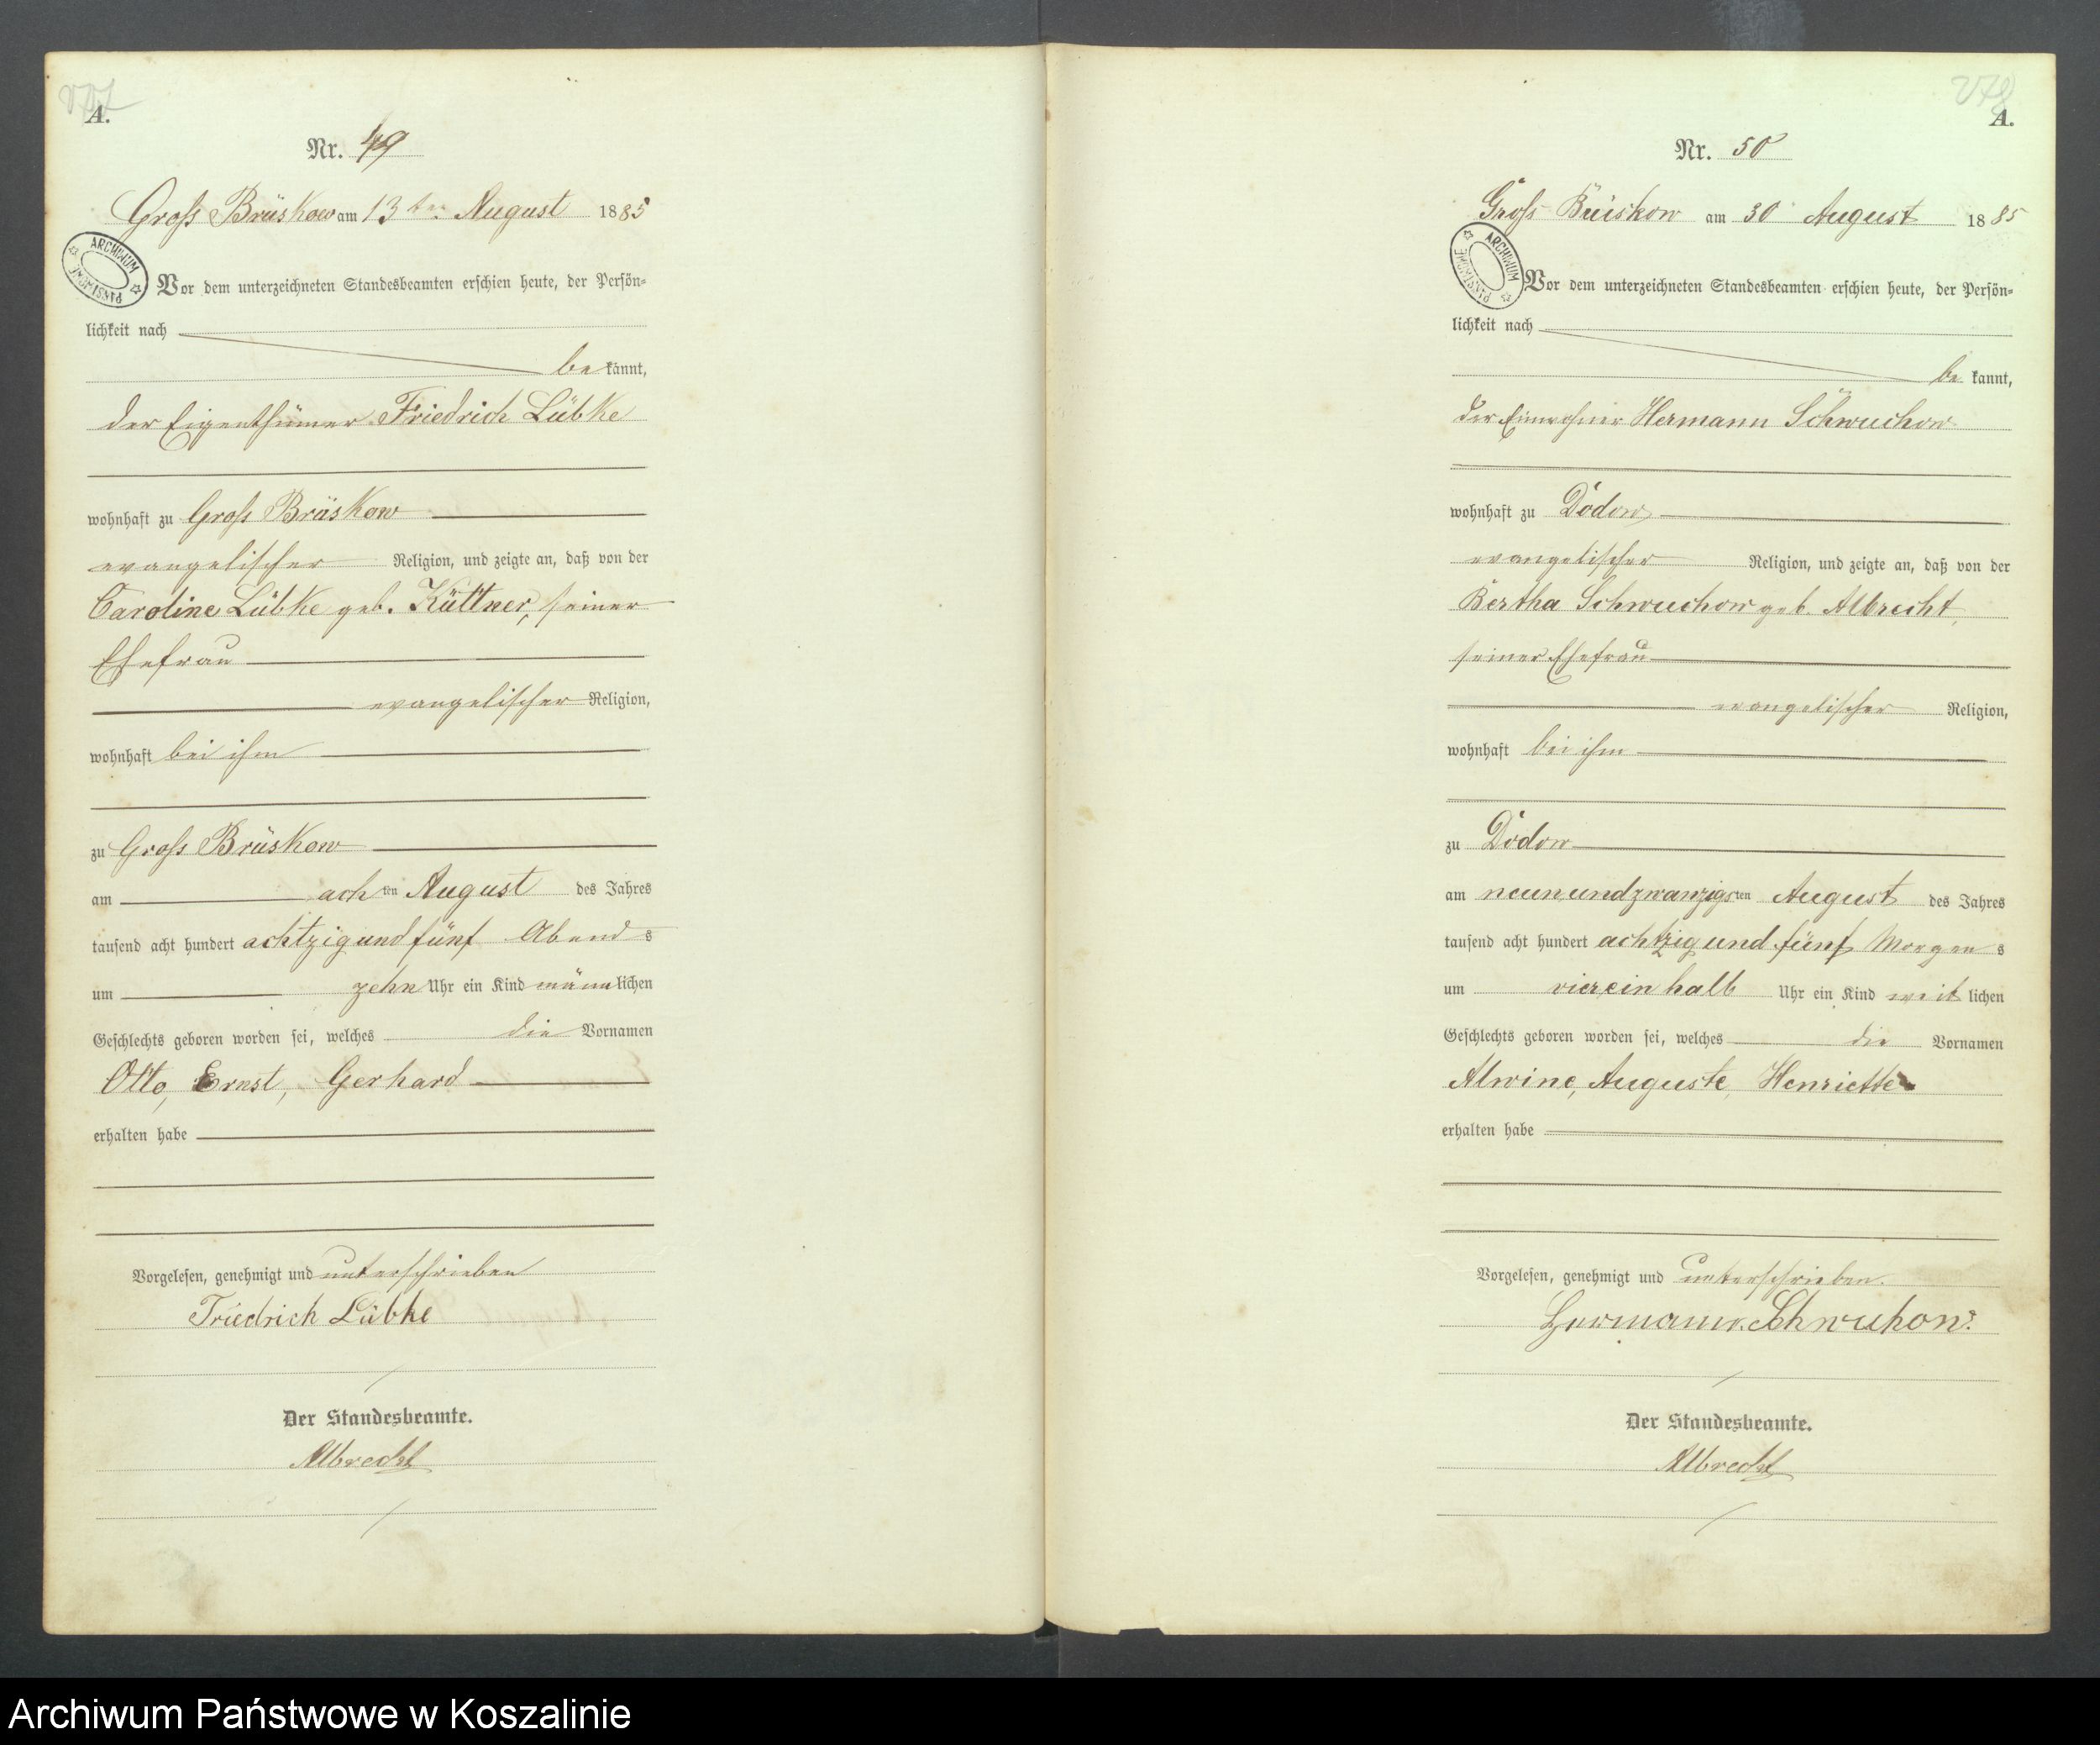 A.
Nr. 49
Gross Brüskow am 13ten August 1885
ARCHIWUM PAŃSTWOWE
Vor dem unterzeichneten Standesbeamten erschien heute, der Persön-
lichkeit nach
be kannt,
der Eigenthümer Friedrich Lübke
wohnhaft zu Gross Brüskow
evangelischer Religion, und zeigte an, daß von der
Caroline Lübke geb. Küttner, seiner
Ehefrau
evangelischer Religion,
wohnhaft bei ihm
zu Gross Brüskow
am achten August des Jahres
tausend acht hundert achtzig und fünf Abends
um zehn Uhr ein Kind männlichen
Geschlechts geboren worden sei, welches die Vornamen
Otto, Ernst, Gerhard
erhalten habe
Vorgelesen, genehmigt und unterschrieben
Friedrich Lübke
Der Standesbeamte.
Albrecht
278
A.
Nr. 50
Gross Brüskow am 30 August 1885
ARCHIWUM PAŃSTWOWE
Vor dem unterzeichneten Standesbeamten erschien heute, der Persön-
lichkeit nach
be kannt,
der Einwohner Hermann Schwuchow
wohnhaft zu Dodow
evangelischer Religion, und zeigte an, daß von der
Bertha Schwuchow geb. Albrecht,
seiner Ehefrau
evangelischer Religion,
wohnhaft bei ihm
zu Dodow
am neunundzwanzigsten August des Jahres
tausend acht hundert achtzig und fünf Morgens
um viereinhalb Uhr ein Kind weiblichen
Geschlechts geboren worden sei, welches die Vornamen
Alwine, Auguste, Henriette
erhalten habe
Vorgelesen, genehmigt und unterschrieben.
Hermann Schwuhow.
Der Standesbeamte.
Albrecht
Archiwum Państwowe w Koszalinie